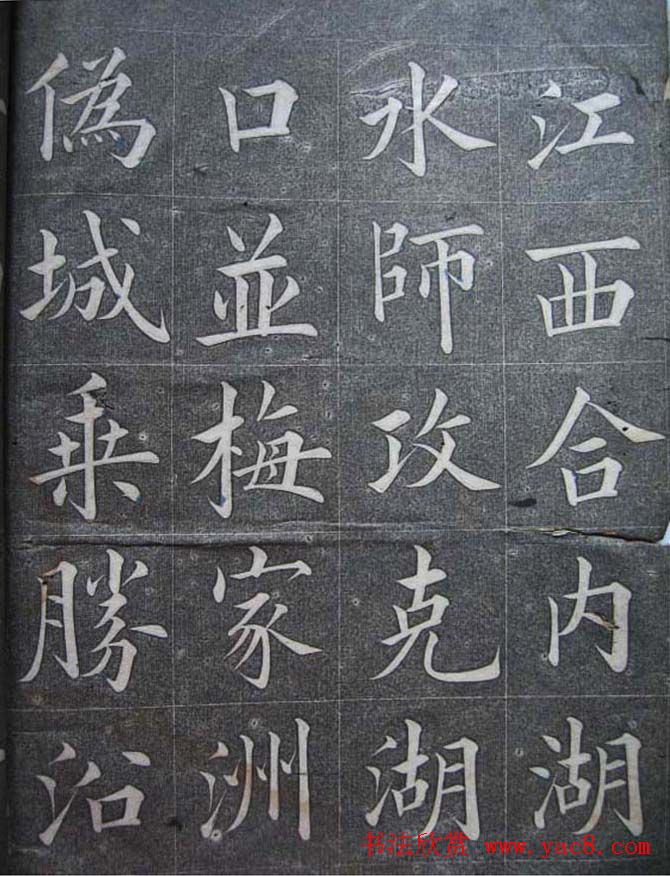 江西合内湖
水師攻克湖
口並梅家洲
偽城乗勝沿
书法欣赏 www.yac8.com